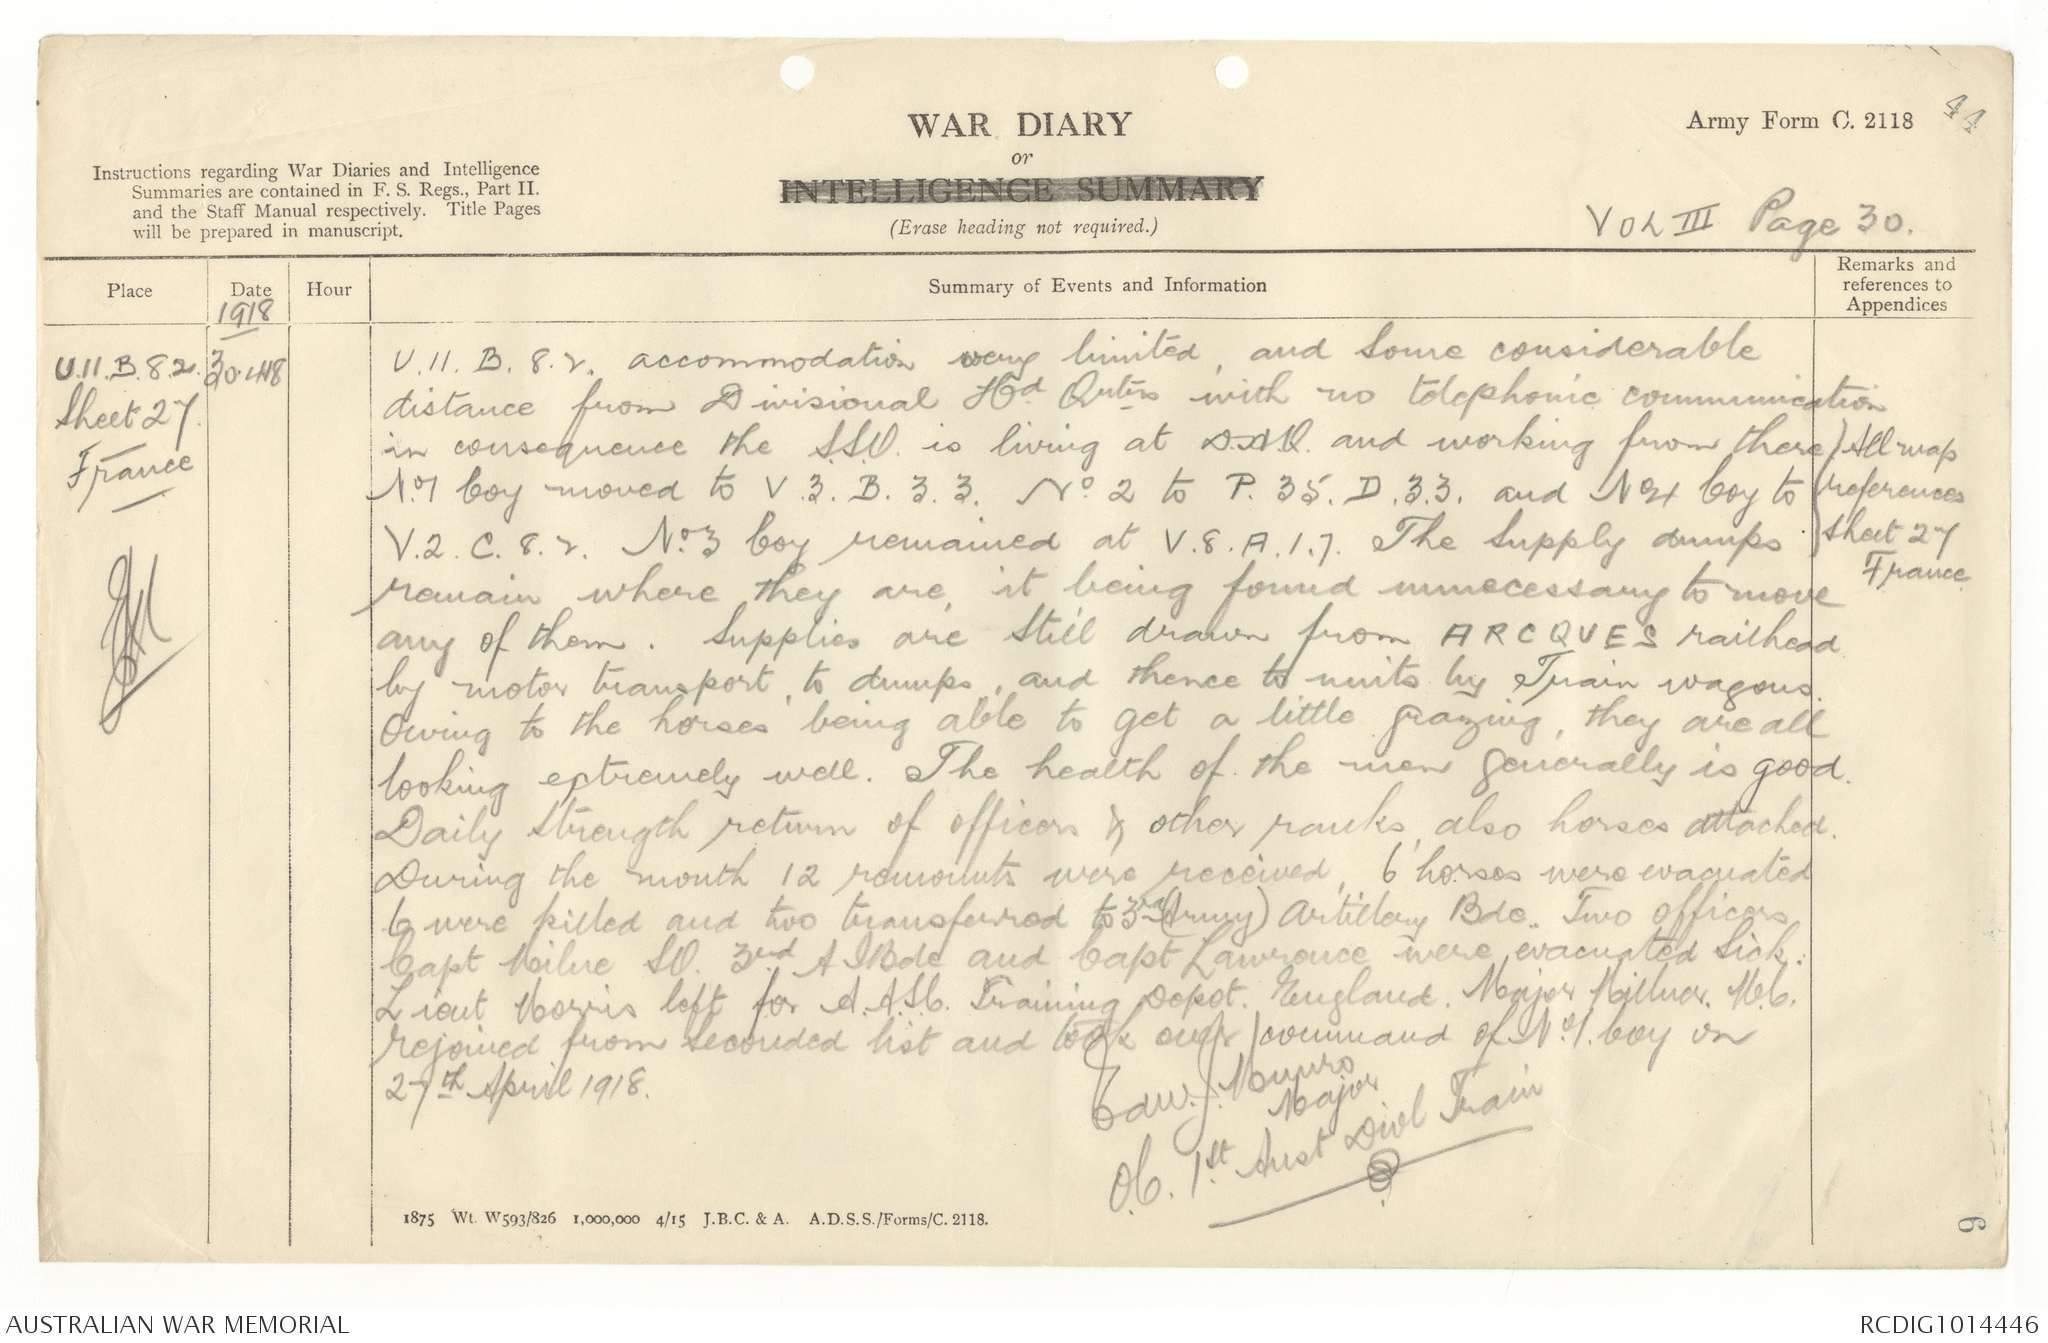 WAR DIARY
or
INTELLIGENCE SUMMARY
(Erase heading not required.)
Army Form C. 2118
44
Instructions regarding War Diaries and Intelligence
Summaries are contained in F. S. Regs., Part II.
and the Staff Manual respectively. Title Pages
will be prepared in manuscript.
VOL III Page 30.
Place
Date
1918
Hour
Summary of Events and Information
Remarks and
references to
Appendices
U.11.B.8.2.
Sheet 27.
France
30.4.18
U.11.B.8.2. accommodation very limited, and some considerable
distance from Divisional Hd Qrters with no telephonic communication
in consequence the S.S.O. is living at D.H.Q. and working from there
No 1 Coy moved to V.3.B.3.3. No 2 to P.35.D.3.3. and No 4 Coy to
V.2.C.8.2. No 3 Coy remained at V.8.A.1.7. The Supply dumps
remain where they are, it being found unnecessary to move
any of them. Supplies are still drawn from ARCQUES railhead
by motor transport, to dumps, and thence to units by Train wagons.
Owing to the horses being able to get a little grazing, they are all
looking extremely well. The health of the men generally is good.
Daily Strength return of officers & other ranks, also horses attached.
During the month 12 remounts were received, 6 horses were evacuated
6 were killed and two transferred to 3rd (Army) Artillery Bde. Two officers
Capt Milne SO. 3rd A I Bde and Capt Lawrence were evacuated sick.
Lieut Morris left for A.A.S.C. Training Depot. England. Major Millner. M.C.
rejoined from seconded list and took over command of No 1. Coy on
27th April 1918.
All map
references
Sheet 27
France
Edw. J. Munro
Major
OC. 1st Aust Divl Train
1875 Wt. W593/826 1,000,000 4/15 J.B.C. & A. A.D.S.S./Forms/C. 2118.
6
AUSTRALIAN WAR MEMORIAL
RCDIG1014446